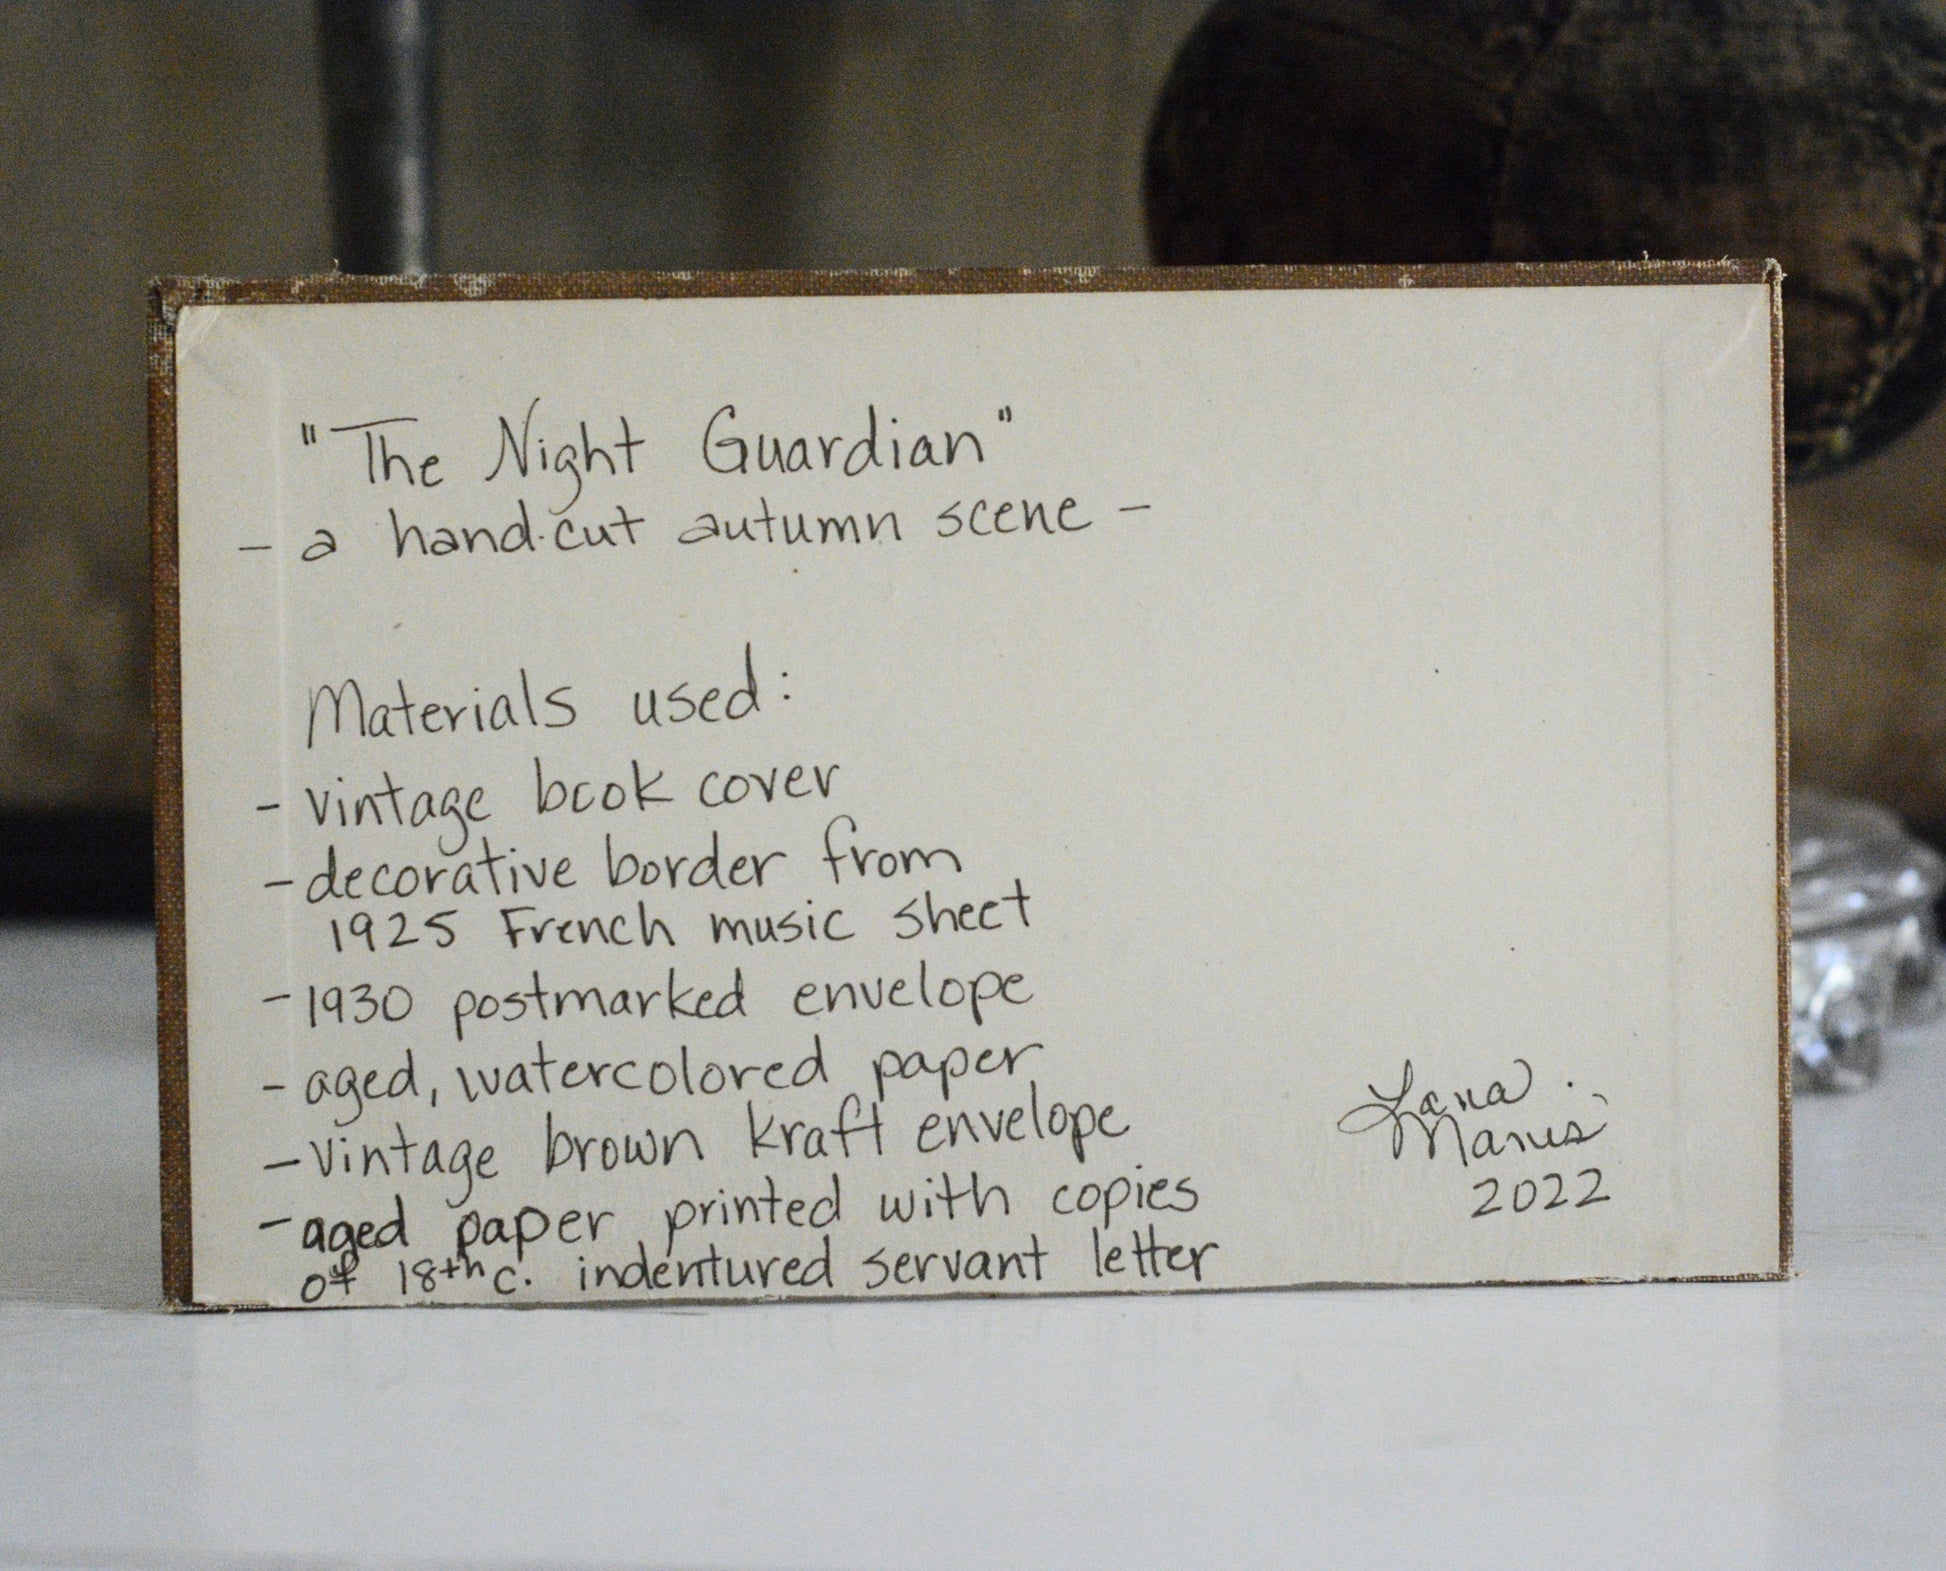 "The Night Guardian"
- a hand-cut autumn scene -
Materials used:
- vintage book cover
- decorative border from
1925 French music sheet
- 1930 postmarked envelope
- aged, watercolored paper
- vintage brown kraft envelope
- aged paper printed with copies
of 18th c. indentured servant letter
Lana
Manis
2022